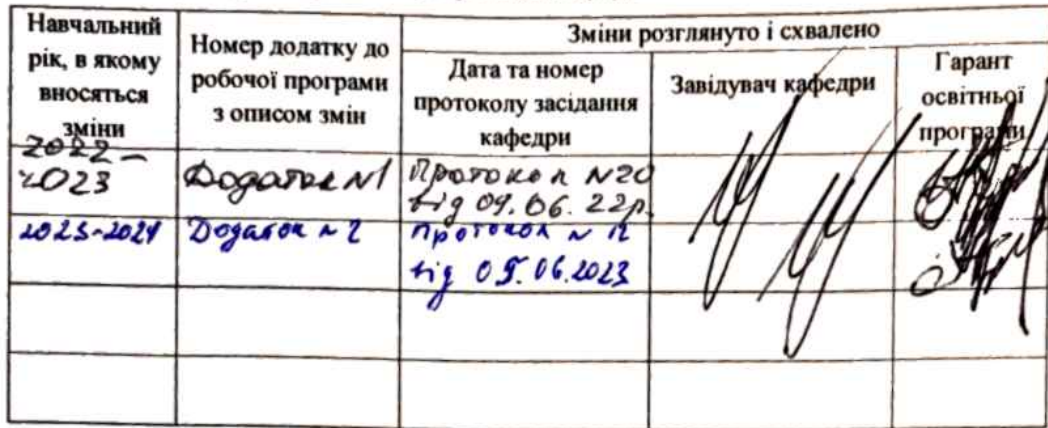 Навчальний
рік, в якому
вносяться
зміни
Номер додатку до
робочої програми
з описом змін
Зміни розглянуто і схвалено
Дата та номер
протоколу засідання
кафедри
Завідувач кафедри
Гарант
освітньої
програми
2022 –
2023
Додаток №1
Протокол №20
від 09.06.22р.
2023-2024
Додаток № 2
Протокол № 12
від 05.06.2023